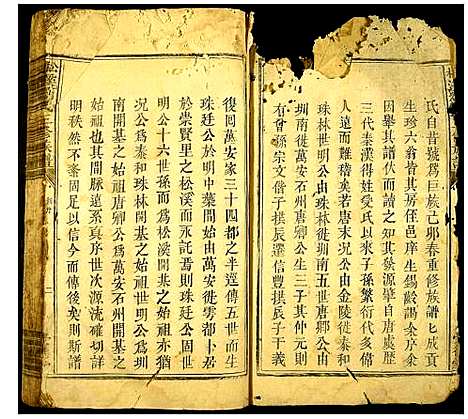 氏自昔號爲巨族己卯春重修族譜匕成貢
生珍六翁皆其房侄邑庠生錫齡謁余序余
因舉其譜伏而讀之知其發源華
三代秦漢得姓受氏以來子孫繁衍代多傳
人遠而難稽矣若唐末況公由金陵徙泰和
珠林世明公由珠林徙圳南五世唐卿公由
圳南徙萬安石州唐卿公生三子其仲元則
者有孫宗文偕子拱辰選信豐拱辰子干義
復回萬安家三十四都之半逕傳五世而生
珠廷公於明中葉始由萬安徙雩都卜居
於崇賢里之松溪而永託焉則珠廷公固世
明公十六世孫而爲松溪開基之始祖亦猶
況公爲泰和珠林開基之始祖世明公爲圳
南開基之始祖唐卿公爲萬安石州開基之
始祖也其間脈遠系眞世次源流確切詳
明秩然不紊固足以信今而傳後矣則斯譜